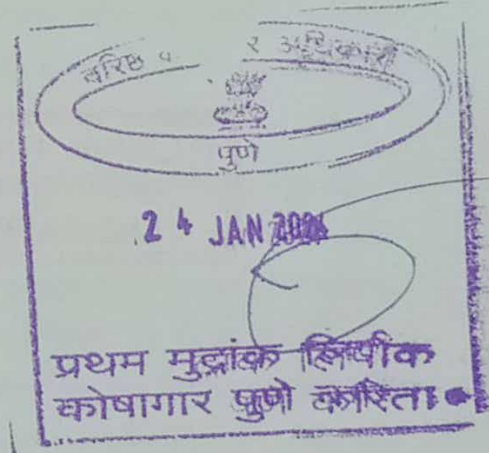 वरिष्ठ
अधिकारी
पुणे
24 JAN
प्रथम मुद्रांक लिपीक
कोषागार पुणे करिता